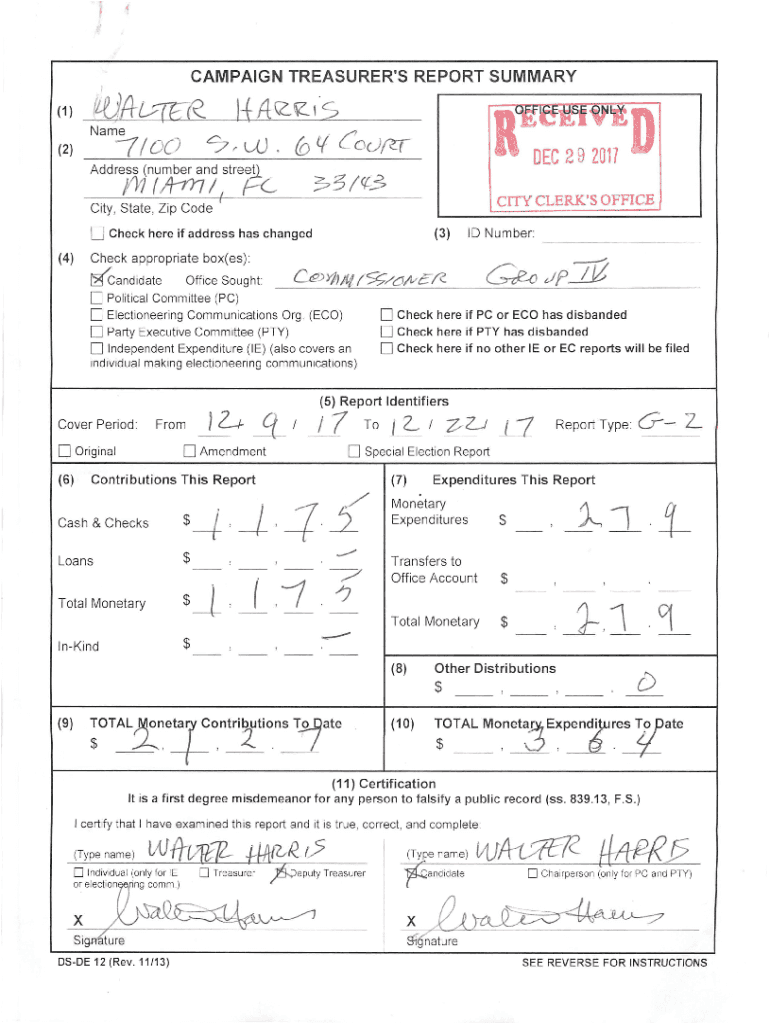 CAMPAIGN TREASURER'S REPORT SUMMARY
(1) WALTER HARRIS
Name
(2) 7100 S.W. 64 COURT
Address (number and street)
MIAMI, FL 33143
City, State, Zip Code
OFFICE USE ONLY
RECEIVED
DEC 29 2017
CITY CLERK'S OFFICE
Check here if address has changed
(3) ID Number:
(4) Check appropriate box(es):
Candidate Office Sought: COMMISSIONER GROUP IV
Political Committee (PC)
Electioneering Communications Org. (ECO)
Party Executive Committee (PTY)
Independent Expenditure (IE) (also covers an
individual making electioneering communications)
Check here if PC or ECO has disbanded
Check here if PTY has disbanded
Check here if no other IE or EC reports will be filed
(5) Report Identifiers
Cover Period: From 12 / 9 / 17 To 12 / 22 / 17 Report Type: G-2
Original Amendment Special Election Report
(6) Contributions This Report
Cash & Checks $ 1 , 1 , 7 . 5
Loans $ , , . -
Total Monetary $ 1 , 1 , 7 . 5
In-Kind $ , , . -
(7) Expenditures This Report
Monetary
Expenditures $ , 2 7 . 9
Transfers to
Office Account $ , , .
Total Monetary $ , 2 , 7 . 9
(8) Other Distributions
$ , , . 0
(9) TOTAL Monetary Contributions To Date
$ 2 , 1 , 2 . 7
(10) TOTAL Monetary Expenditures To Date
$ , 3 , 6 . 4
(11) Certification
It is a first degree misdemeanor for any person to falsify a public record (ss. 839.13, F.S.)
I certify that I have examined this report and it is true, correct, and complete:
(Type name) WALTER HARRIS
Individual (only for IE Treasurer Deputy Treasurer
or electioneering comm.)
X Walter Harris
Signature
(Type name) WALTER HARRIS
Candidate Chairperson (only for PC and PTY)
X Walter Harris
Signature
DS-DE 12 (Rev. 11/13) SEE REVERSE FOR INSTRUCTIONS